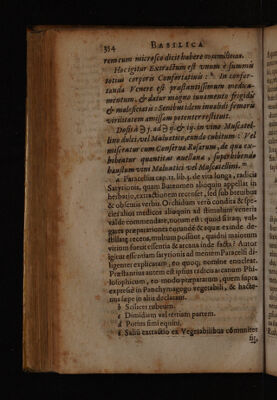 354 BASILICA
rem cum microscosmicis habere
Hoc igitur Extractum est vnum è summis
totius corporis Confortatiuis: In confor-
tanda Venere est præstantissimum medica-
mentum, & datur magno iuuamento frigidis
& maleficiatis: Senibus itdem inualidi femoris
virilitatem amissam potenter restituit.
Dosis à ʒ j. ad ij. in vino Muscatel-
lino dulci, vel Maluatico, eundo cubitum: Vel
misceatur cum Conserua Rosarum, de qua ex-
hibentur quantitas auellana, superbibendo
haustum vini Maluatici vel Muscatellini.
a Paracelsus cap. 12. lib. 3. de vita longa, radicis
Satyrionis, quam Buzeomen alioquin appellat in
herbario, extractionem recenset, sed sub breuibus
& obscuris verbis. Orchidum verò condita & spe-
cies alios medicos alioquin ad stimulum veneris
valde commendare, notum est: quòd si itaq; vul-
gares præparationes
destillatę recens, multum possunt, quidni maiorum
virium foret essentia & arcana inde facta? Autor
igitur essentiam satyrionis ad mentem Paracelsi di-
ligenter explicatam, eo quoq; nomine enucleat.
Præstantius autem est ipsius radicis arcanum Phi-
losophicum, eo modo præparatum, quem supra
expressit in Panchymagogo vegetabili, & hacte-
nus sæpe in aliis declarari.
b Scilicet tubeum.
c Dimidium vel tertiam partem.
d Potius fimi equini.
e Salis extractio ex Vegetabilibus cōmuniter